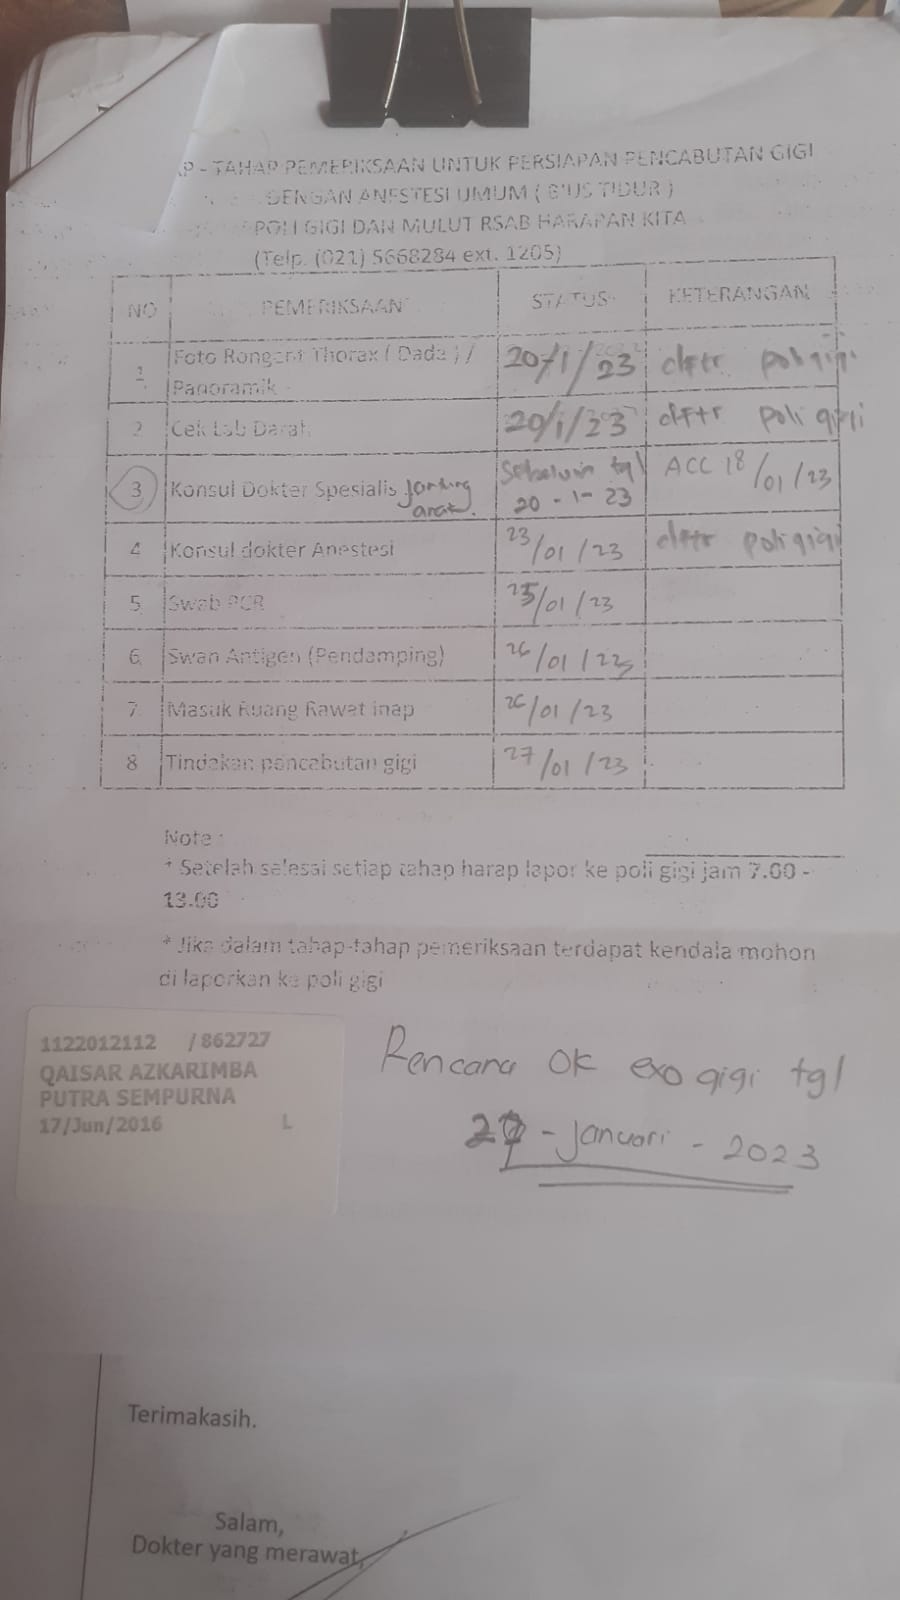 - TAHAP PEMERIKSAAN UNTUK PERSIAPAN PENCABUTAN GIGI
DENGAN ANESTESI UMUM ( BIUS TIDUR )
POLI GIGI DAN MULUT RSAB HARAPAN KITA
(Telp. (021) 5668284 ext. 1205)
NO PEMERIKSAAN STATUS KETERANGAN
1 Foto Rongent Thorax ( Dada ) / Panoramik 20/1/23 dftr poli gigi
2 Cek Lab Darah 20/1/23 dftr poli gigi
3 Konsul Dokter Spesialis Jantung anak. Sebelum tgl 20-1-23 ACC 18/01/23
4 Konsul dokter Anestesi 23/01/23 dftr poli gigi
5 Swab PCR 25/01/23
6 Swan Antigen (Pendamping) 26/01/23
7 Masuk Ruang Rawat inap 26/01/23
8 Tindakan pencabutan gigi 27/01/23
Note :
* Setelah selesai setiap tahap harap lapor ke poli gigi jam 7.00 -
13.00
* Jika dalam tahap-tahap pemeriksaan terdapat kendala mohon
di laporkan ke poli gigi
1122012112 / 862727
QAISAR AZKARIMBA
PUTRA SEMPURNA
17/Jun/2016 L
Rencana OK exo gigi tgl
27 - Januari - 2023
Terimakasih.
Salam,
Dokter yang merawat,